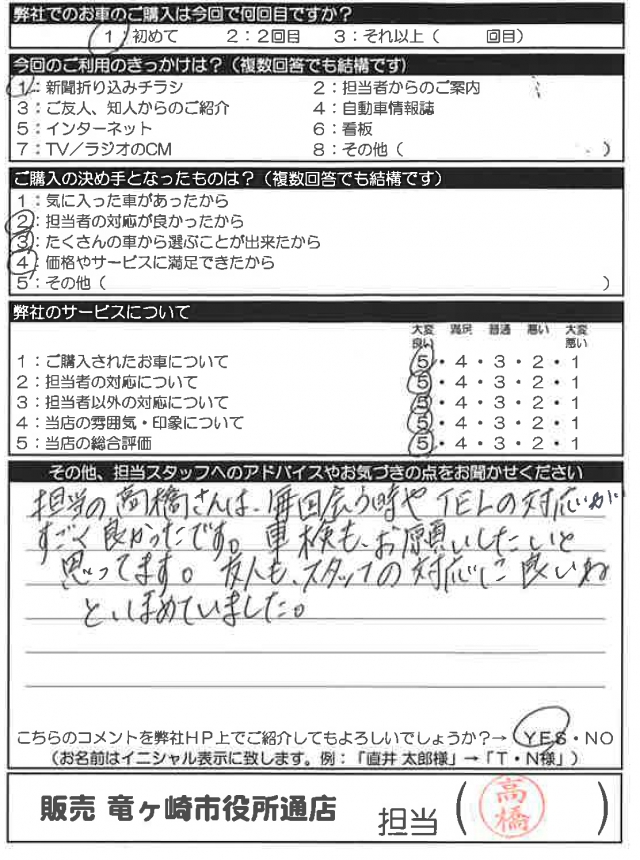 弊社でのお車のご購入は今回で何回目ですか？
1：初めて 2：2回目 3：それ以上（ 回目）
今回のご利用のきっかけは？（複数回答でも結構です）
1：新聞折り込みチラシ 2：担当者からのご案内
3：ご友人、知人からのご紹介 4：自動車情報誌
5：インターネット 6：看板
7：TV／ラジオのCM 8：その他（ ）
ご購入の決め手となったものは？（複数回答でも結構です）
1：気に入った車があったから
2：担当者の対応が良かったから
3：たくさんの車から選ぶことが出来たから
4：価格やサービスに満足できたから
5：その他（ ）
弊社のサービスについて
大変良い 満足 普通 悪い 大変悪い
1：ご購入されたお車について 5・4・3・2・1
2：担当者の対応について 5・4・3・2・1
3：担当者以外の対応について 5・4・3・2・1
4：当店の雰囲気・印象について 5・4・3・2・1
5：当店の総合評価 5・4・3・2・1
その他、担当スタッフへのアドバイスやお気づきの点をお聞かせください
担当の高橋さんは、毎回会う時やTELの対応が
すごく良かったです。車検も、お願いしたいと
思ってます。友人も、スタッフの対応に良いね
といほめていました。
こちらのコメントを弊社HP上でご紹介してもよろしいでしょうか？→ YES・NO
（お名前はイニシャル表示に致します。例：「直井 太郎様」→「T・N様」）
販売 竜ヶ崎市役所通店 担当（高橋）